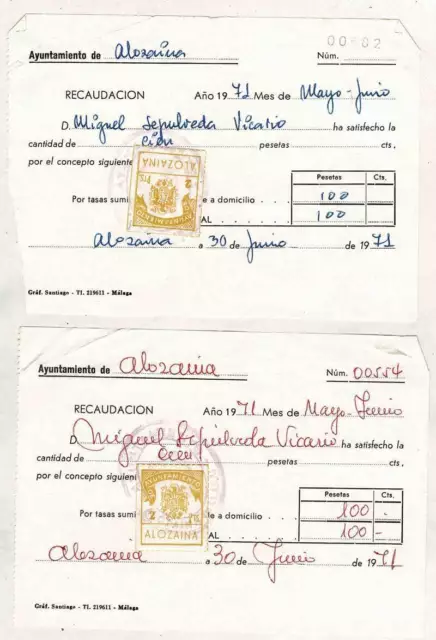 00-02
Ayuntamiento de Alozaina Núm.
RECAUDACION Año 1971 Mes de Mayo-Junio
D. Miguel Sepulveda Vicario ha satisfecho la
cantidad de Cien pesetas cts.
por el concepto siguiente
ALOZAINA
2 Pts.
AYUNTAMIENTO
Pesetas Cts.
Por tasas sumi e a domicilio 100
AL 100
Alozaina a 30 de Junio de 1971
Gráf. Santiago - Tl. 219611 - Málaga
Ayuntamiento de Alozaina Núm. 00554
RECAUDACION Año 1971 Mes de Mayo-Junio
D. Miguel Sepulveda Vicario ha satisfecho la
cantidad de Cien pesetas cts.
por el concepto siguient
AYUNTAMIENTO
2 Pts.
ALOZAINA
Pesetas Cts.
Por tasas sumi e a domicilio 100 -
AL 100 -
Alozaina a 30 de Junio de 1971
Gráf. Santiago - Tl. 219611 - Málaga